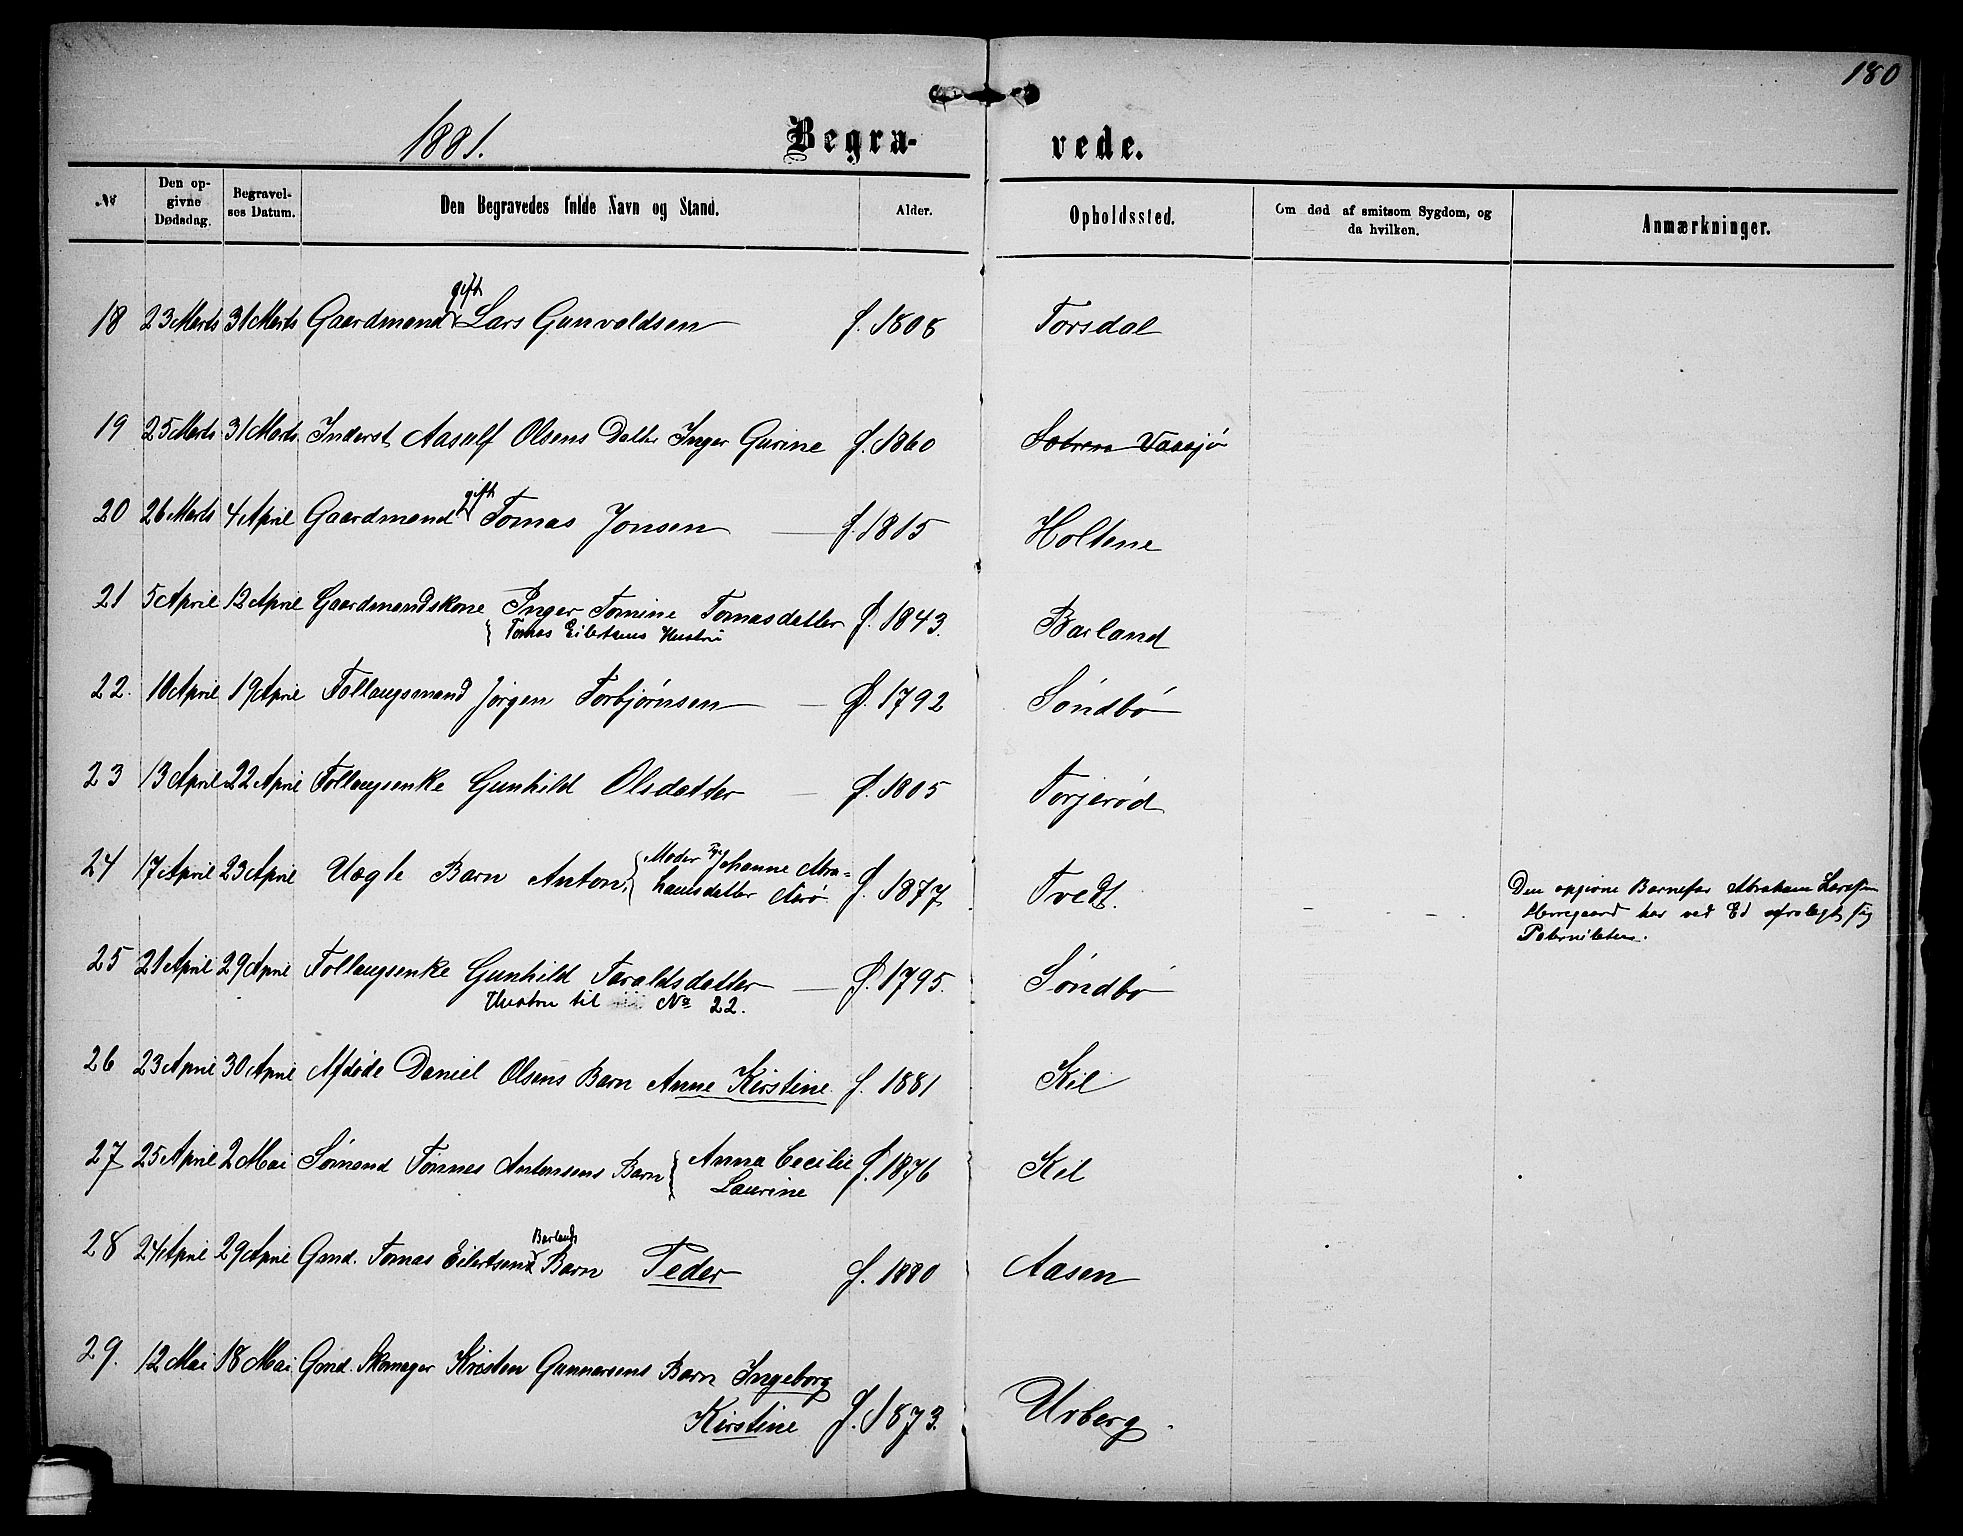 180
1881.
Begra-
vede.
№
Den op-
givne
Dødsdag.
Begravel-
ses Datum.
Den Begravedes fulde Navn og Stand.
Alder.
Opholdssted.
Om død af smitsom Sygdom, og
da hvilken.
Anmærkninger.
gift
18 23 Marts 31 Marts Gaardmand Lars Gunvaldsen f. 1808 Torsdal
19 25 Marts 31 Marts Inderst Aasulf Olsens Datter Inger Gurine f. 1860 Vaasjø
gift
20 26 Marts 4 April Gaardmand Tomas Jonsen f. 1815 Holtene
21 5 April 12 April Gaardmandskone Inger Tomine Tomasdatter f. 1843. Barland
Tomas Eilertsens Hustru
22. 10 April 19 April Follaugsmand Jørgen Torbjørnsen f. 1792 Søndbø
23 13 April 22 April Follaugsenke Gunhild Olsdatter f. 1805 Torjerød
24 17 April 23 April Uægte Barn Anton, Moder Pige Johanne Abra=
hamsdatter Aarø f. 1877 Tvedt.
Den opgivne Barnefar Abraham Larsen
Herregaard har ved Ed fralagt sig
Paterniteten.
25 21 April 29 April Follaugsenke Gunhild Taraldsdatter f. 1795. Søndbø
Hustru til No 22.
26 23 April 30 April Afdøde Daniel Olsens Barn Anne Kirstine f. 1881 Kil
27 25 April 2 Mai Sømand Tønnes Antonsens Barn Anna Cecilie f. 1876 Kil
Laurine
Barlands
28 24 April 29 April Gmd. Tomas Eilertsens Barn Peder f. 1880 Aasen
29. 12 Mai 18 Mai Gmd. Skomager Kristen Gunnarsens Barn Ingeborg
Kirstine f. 1873. Urberg.